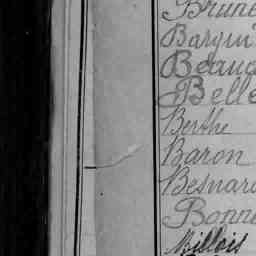 Brune
Barqui
Beauc
Belle
Berthe
Baron
Besnard
Bonne
Millois